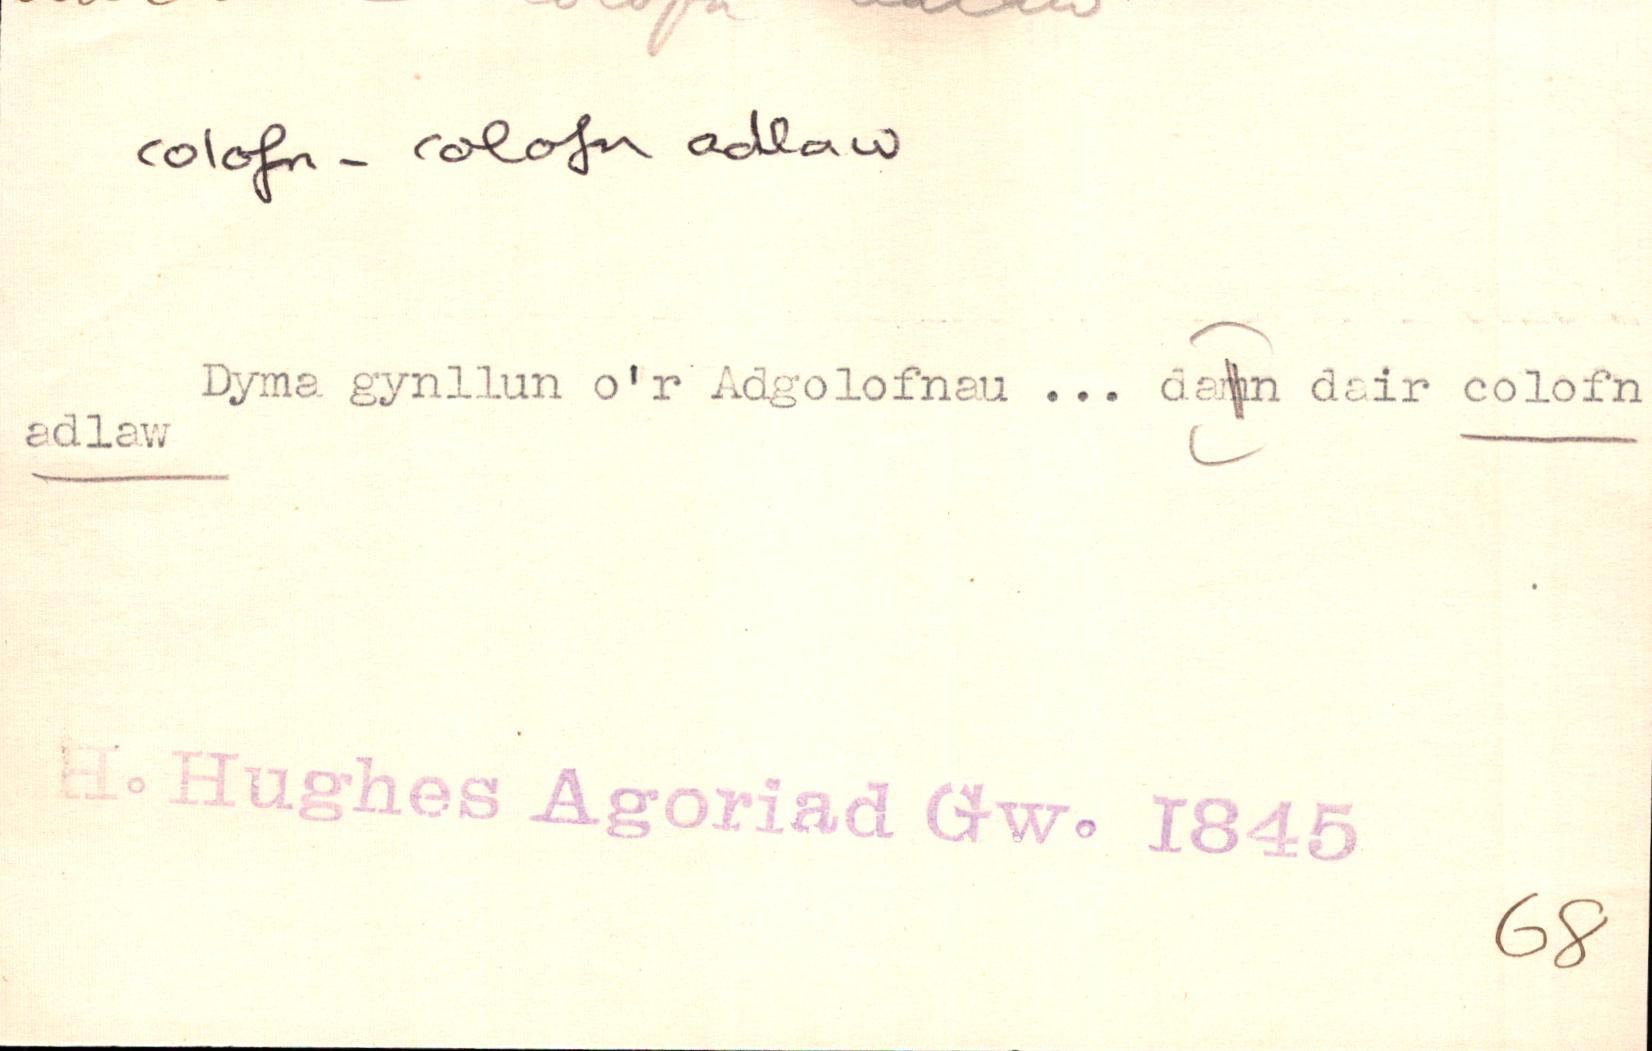 colofn adlaw
colofn - colofn adlaw
Dyma gynllun o'r Adgolofnau ... dan dair colofn
adlaw
H. Hughes Agoriad Gw. 1845
68